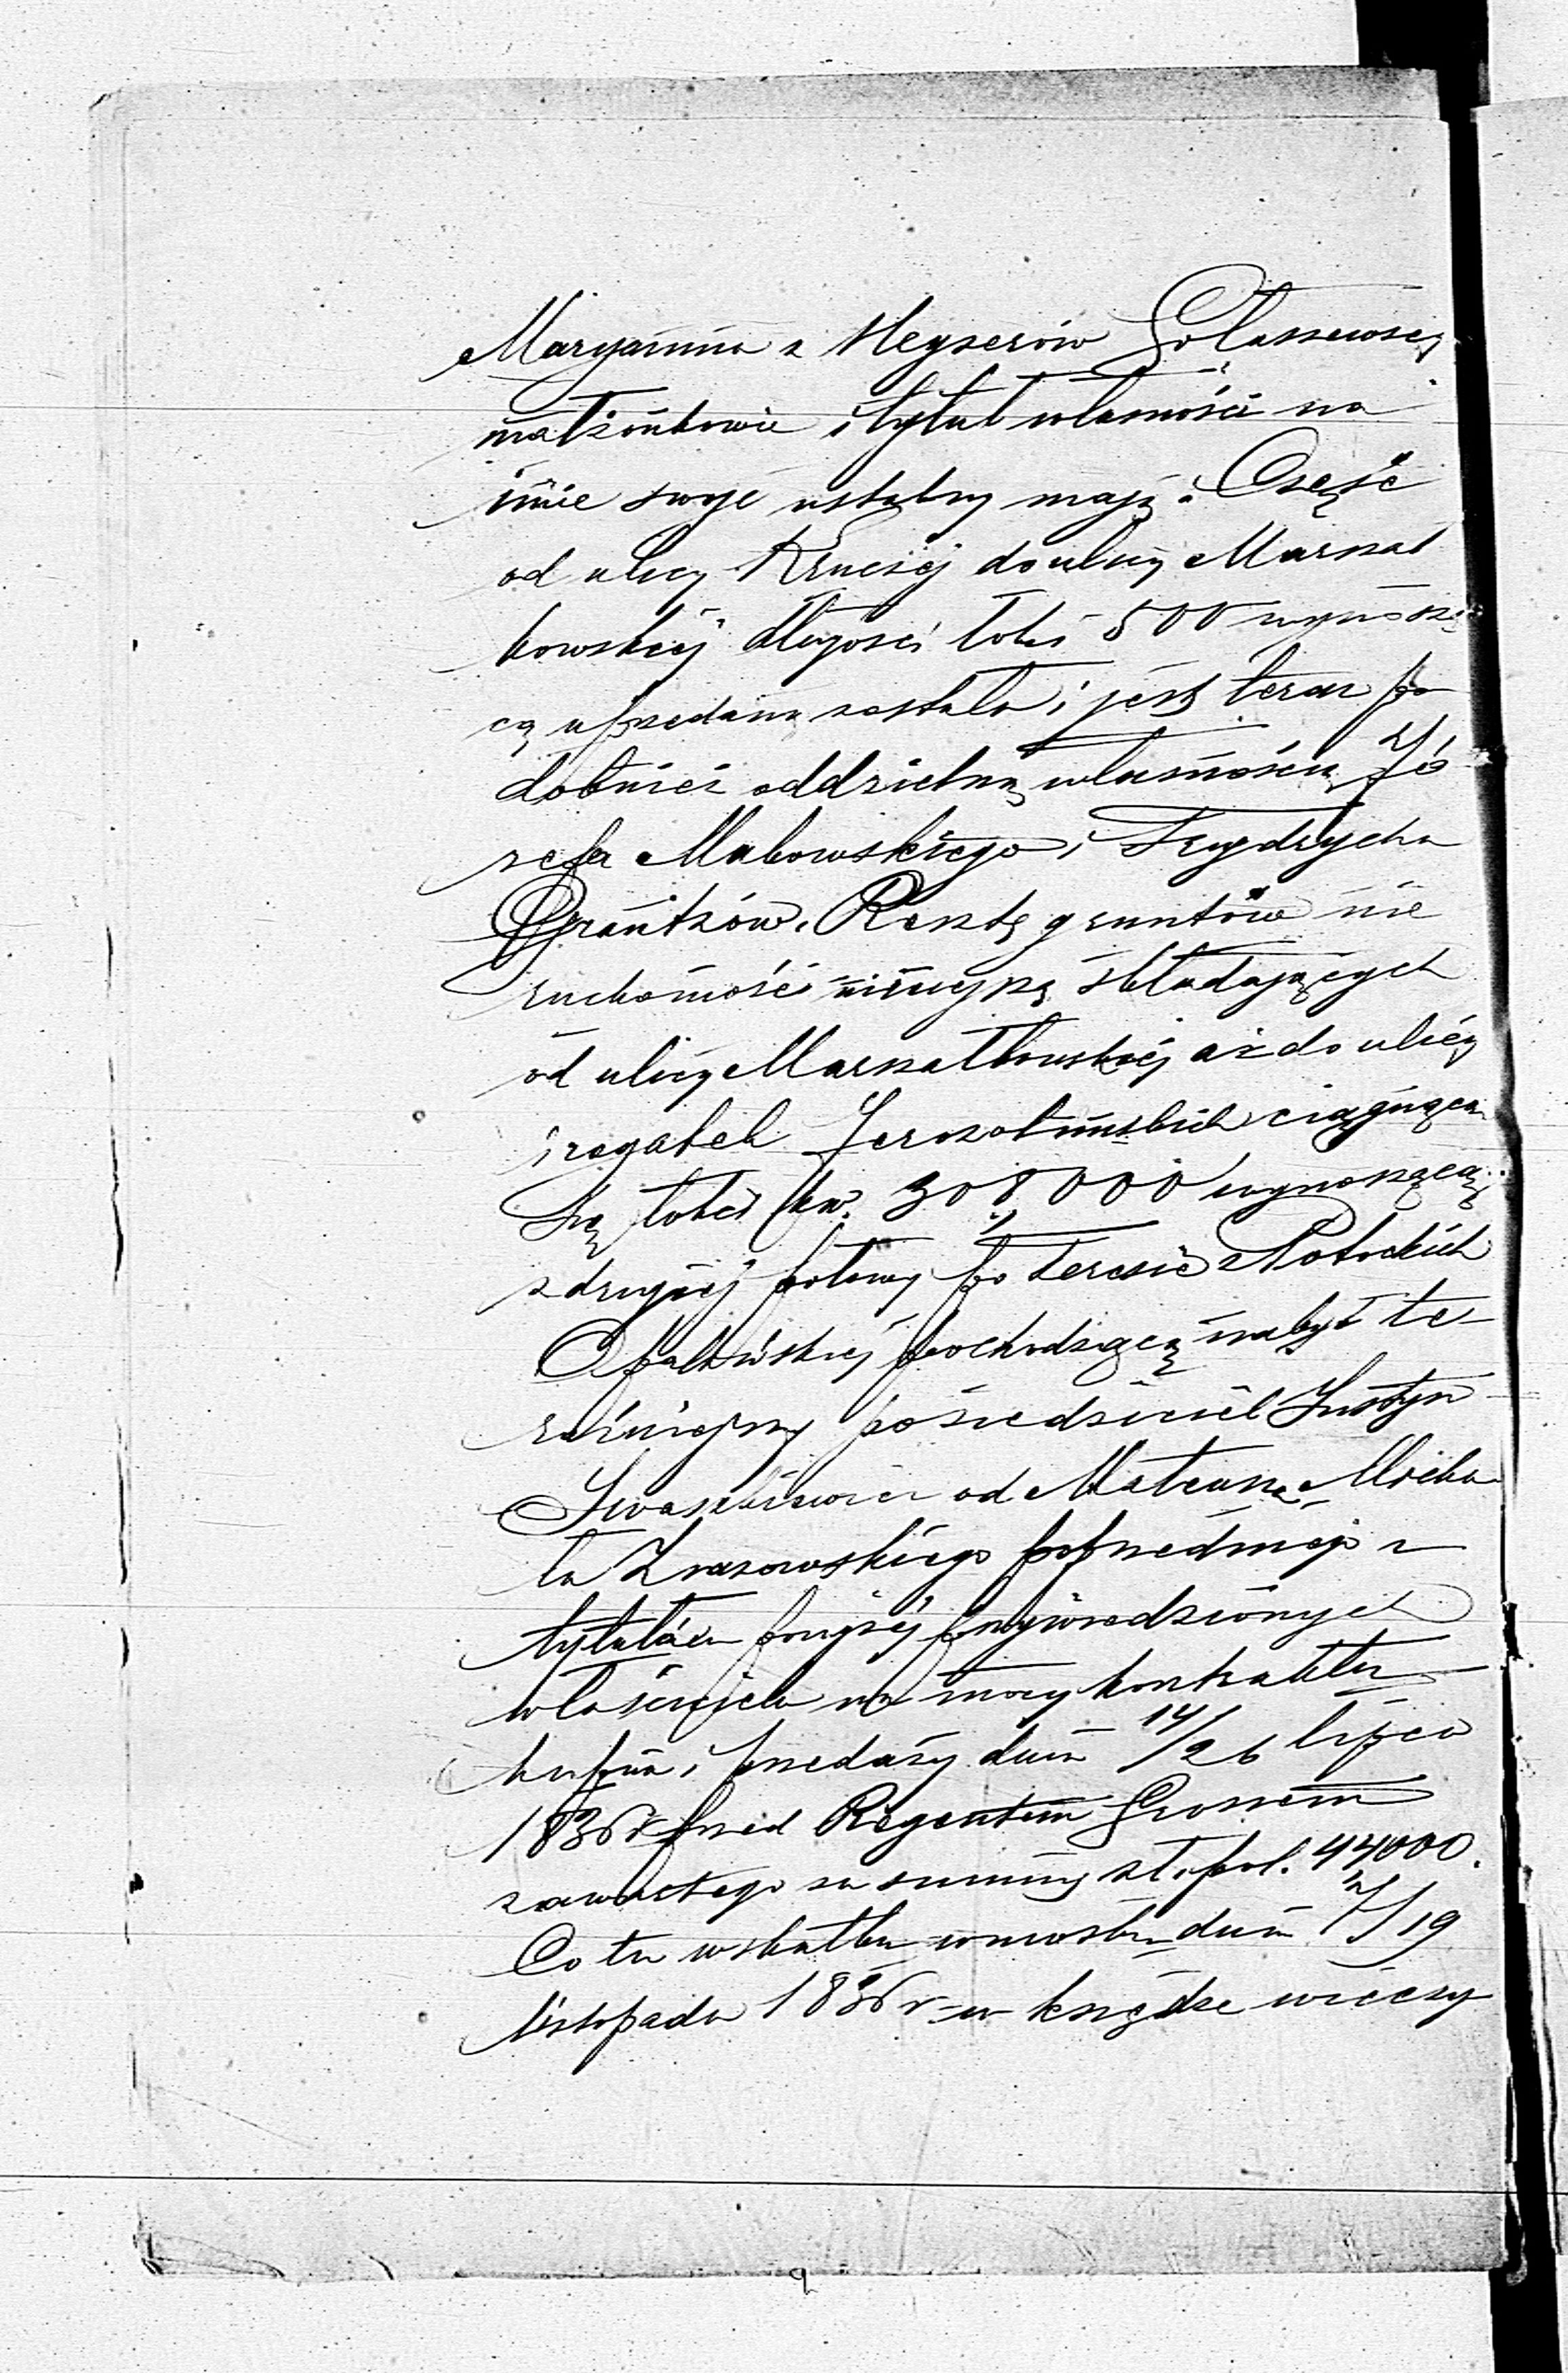 Maryanna z Heyzerów Gołaszewscy
małżonkowie i tytuł własności na
imie swoje ustalony mają. Część
od ulicy Kruczej do ulicy Marszał
kowskiej długości łokci 500 wynoszą
cą uprzedana została i jest teraz po
dobnież oddzielną własnością Jó
zefa Makowskiego i Frydrycha
Grantzów. Resztę gruntów nie
ruchomość niniejszą składających
od ulicy Marszałkowskiej aż do ulicy
i rogatek Jerozolimskich ciągnącą
się łokci kw. 308000 wynoszącą
z drugiej połowy po Teresie z Potockich
pochodzącą nabył te
raźniejszy posiedziciel Justyn
od Mateusza Micha
ła poprzedniego z
tytułów powyżej przywiedzionych
właściciela na mocy kontraktu
kupna i przedaży dnia 14/26 lipca
1836 r. przed Regentem
zawartego za summę zł. pol. 44000.
Co to w skutku wniosku dnia 7/19
listopada 1836 r. w księdze wieczy
9